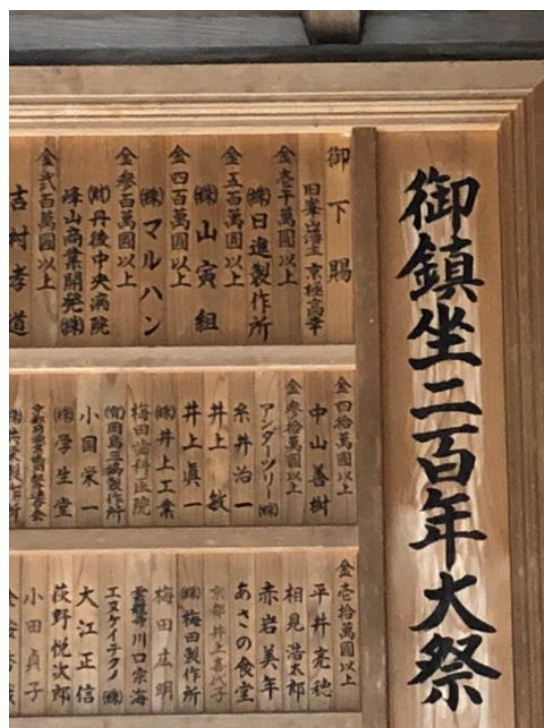 御鎮坐二百年大祭
御下賜
旧峯山藩主 京極高幸
金壱千萬圓以上
㈱日進製作所
金五百萬圓以上
㈱山寅組
金四百萬圓以上
㈱マルハン
金参百萬圓以上
㈶丹後中央病院
峰山商業開発㈱
金弐百萬圓以上
吉村孝道
金四拾萬圓以上
中山善樹
金参拾萬圓以上
アンダーツリー㈱
糸井治一
井上敏
井上眞一
㈱井上工業
梅田歯科医院
㈲岡島三協製作所
小国栄一
㈱厚生堂
金壱拾萬圓以上
平井亮穂
相見浩太郎
赤岩美年
あさの食堂
京都 井上喜代子
㈱梅田製作所
梅田広明
川口宗海
エヌケイテクノ㈱
大江正信
荻野悦次郎
小田貞子